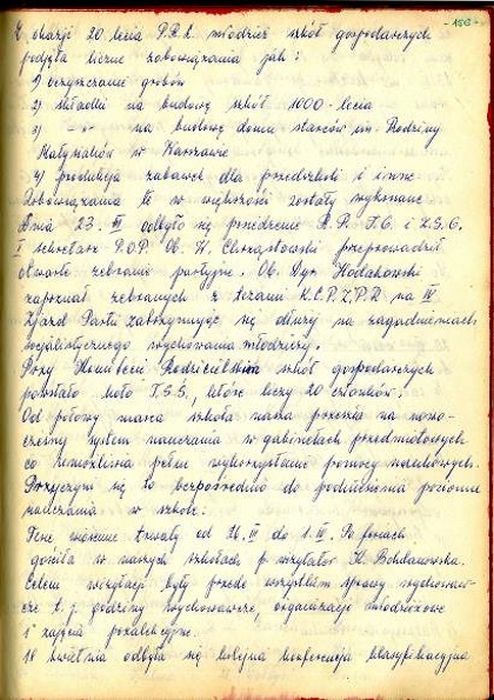 - 156 -
Z okazji 20 lecia P.R.L. młodzież szkół gospodarczych
podjęła liczne zobowiązania jak:
1) oczyszczanie grobów
2) składki na budowę szkół 1000-lecia
3) -"- na budowę domu starców im. Rodziny
Matysiaków w Warszawie
4) produkcja zabawek dla przedszkoli i inne
Zobowiązania te w większości zostały wykonane
Dnia 23. III odbyło się posiedzenie R.P. T.G. i Z.S.G.
I sekretarz P.O.P. Ob. H. przeprowadził
otwarte zebranie partyjne. Ob. Dyr.
zapoznał zebranych z tezami K.C.P.Z.P.R na IV
Zjazd Partii zatrzymując się dłużej na zagadnieniach
socjalistycznego wychowania młodzieży.
Przy Komitecie Rodzicielskim szkół gospodarczych
powstało koło T.S.Ś., które liczy 20 członków.
Od połowy marca szkoła nasza przeszła na nowo-
czesny system nauczania w gabinetach przedmiotowych
co umożliwia pełne wykorzystanie pomocy naukowych.
Przyczyni się to bezpośrednio do podniesienia poziomu
nauczania w szkole.
Ferie wiosenne trwały od 26. III do 1. IV. Po feriach
gościła w naszych szkołach p. wizytator K. Bohdanowska.
Celem wizytacji były przede wszystkim sprawy wychowaw-
cze t. j. godziny wychowawcze, organizacje młodzieżowe
i zajęcia pozalekcyjne.
18 kwietnia odbyła się kolejna konferencja klasyfikacyjna